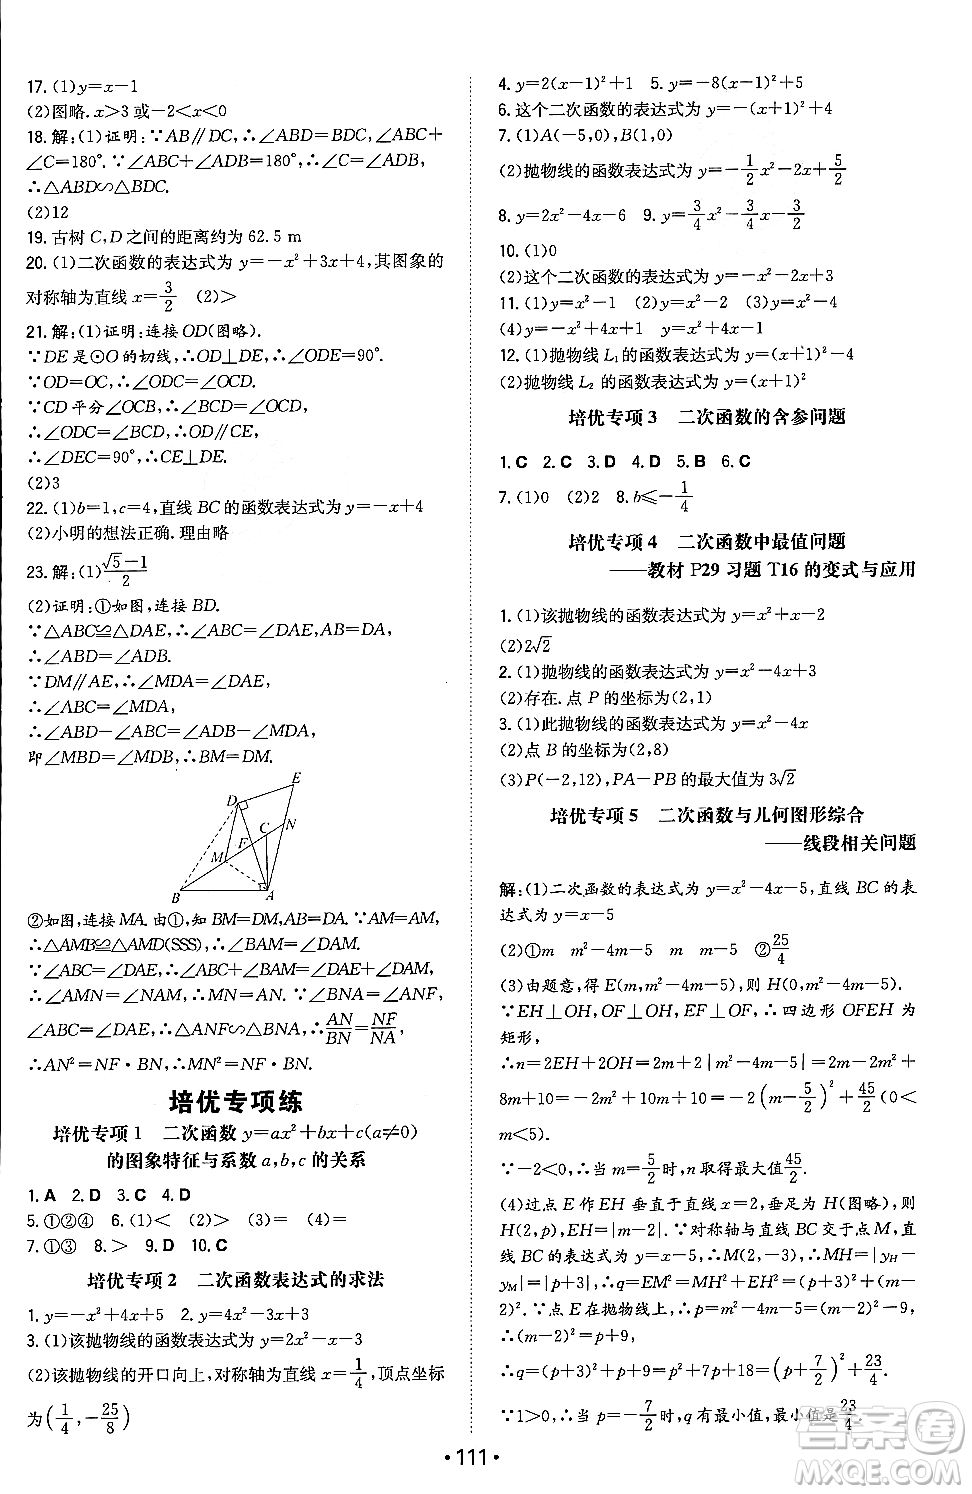 17. (1)y=x−1
(2)图略. x>3 或−2<x<0
18. 解:(1)证明:∵AB∥DC,∴∠ABD=BDC,∠ABC+
∠C=180°. ∵∠ABC+∠ADB=180°,∴∠ADB=∠C,
∴△ABD∽△BDC.
(2)12
19. 古树 C,D 之间的距离约为 62.5 m
20. (1)二次函数的表达式为 y=−x²+3x+4,其图象的
对称轴为直线 x=3/2 (2)>
21. 解:(1)证明:连接 OD(图略).
∵DE 是⊙O 的切线,∴OD⊥DE,∴∠ODE=90°.
∵OD=OC,∴∠ODC=∠OCD.
∵CD 平分∠OCB,∴∠BCD=∠OCD.
∴∠ODC=∠BCD,∴OD∥CE,
∴∠DEC=90°,∴CE⊥DE.
(2)3
22. (1)b=1,c=4,直线 BC 的函数表达式为 y=−x+4
(2)小明的想法正确. 理由略
23. 解:(1)(√5−1)/2
(2)证明:①如图,连接 BD.
∵△ABC≌△DAE,∴∠ABC=∠DAE,AB=DA,
∴∠ABD=∠BDA.
∵DM∥AE,∴∠MDA=∠DAE,
∴∠ABC=∠MDA,
∴∠ABD−∠ABC=∠ADB−∠MDA,
即∠MBD=∠MDB,∴BM=DM.
E
D
C N
M
B A
②如图,连接 MA. 由①,知 BM=DM,AB=DA. ∵AM=AM,
∴△AMB≌△AMD(SSS),∴∠BAM=∠DAM.
∵∠BAM=∠ABC+∠BAM=∠DAE+∠DAM,
∴∠AMN=∠NAM,∴AN=MN. ∵∠BNA=∠ANF,
∠ABC=∠DAE,∴△ANF∽△BNA,∴AN/BN=NF/NA,
∴AN²=NF·BN,∴MN²=NF·BN.
培优专项练
培优专项 1 二次函数 y=ax²+bx+c(a≠0)
的图象特征与系数 a,b,c 的关系
1. A 2. D 3. C 4. D
5. ①②④ 6. (1)< (2)> (3)= (4)=
7. ①③ 8. > 9. D 10. C
培优专项 2 二次函数表达式的求法
1. y=−x²+4x+5 2. y=−2x²+3x+3
3. (1)该抛物线的函数表达式为 y=2x²−x−3
(2)该抛物线的开口向上,对称轴为直线 x=1/4,顶点坐标
为(1/4,−25/8)
4. y=2(x−1)²+1 5. y=−8(x−1)²+5
6. 这个二次函数的表达式为 y=−(x+1)²+4
7. (1)A(−5,0),B(1,0)
(2)抛物线的函数表达式为 y=−1/2x²−2x+5/2
8. y=2x²−4x−6 9. y=3/4x²−3/4x−3/2
10. (1)0
(2)这个二次函数的表达式为 y=−x²−2x+3
11. (1)y=x²−1 (2)y=x²−2x (3)y=−x²−4
(4)y=−x²+1
12. (1)抛物线 L₁的函数表达式为 y=(x+1)²−4
(2)抛物线 L₂ 的函数表达式为 y=(x+1)²
培优专项 3 二次函数的含参问题
1. C 2. C 3. D 4. D 5. B 6. C
7. (1)0 (2)2 8. b⩽−1/4
培优专项 4 二次函数中最值问题
——教材 P29 习题 T16 的变式与应用
1. (1)该抛物线的函数表达式为 y=x²+x−2
(2)2√2
2. (1)抛物线的函数表达式为 y=x²−4x+3
(2)存在. 点 P 的坐标为(2,1)
3. (1)此抛物线的函数表达式为 y=x²−4x
(2)点 B 的坐标为(2,8)
(3)P(−2,12),PA−PB 的最大值为 3√2
培优专项 5 二次函数与几何图形综合
——线段相关问题
解:(1)二次函数的表达式为 y=x²−4x−5,直线 BC 的表
达式为 y=x−5
(2)①m m²−4m−5 m m ②25/4
(3)由题意,得 E(m,m²−4m−5),则 H(0,m²−4m−5).
∵EH⊥OH,OF⊥OH,EF⊥OF,∴四边形 OFEH 为
矩形,
∴n=2EH+2OH=2m+2|m²−4m−5|=−2m²+
8m+10+2m=−2m²+10m+10=−2(m−5/2)²+45/2(0<
m<5).
∵−2<0,∴当 m=5/2时,n 取得最大值45/2.
(4)过点 E 作 EH 垂直于直线 x=2,垂足为 H(图略),则
H(2,p),EH=|m−2|. ∵对称轴与直线 BC 交于点 M,直
线 BC 的表达式为 y=x−5,∴M(2,−3),∴MH=|yH−
yM|=|p+3|,∴q=EM²=MH²+EH²=(p+3)²+(m−
2)². ∵点 E 在抛物线上,∴p=m²−4m−5=(m−2)²−9,
∴(m−2)²=p+9,
∴q=(p+3)²+p+9=p²+7p+18=(p+7/2)²+23/4.
∵1>0,∴当 p=−7/2时,q 有最小值,最小值是23/4.
·111·
答案圈
MXQE.COM